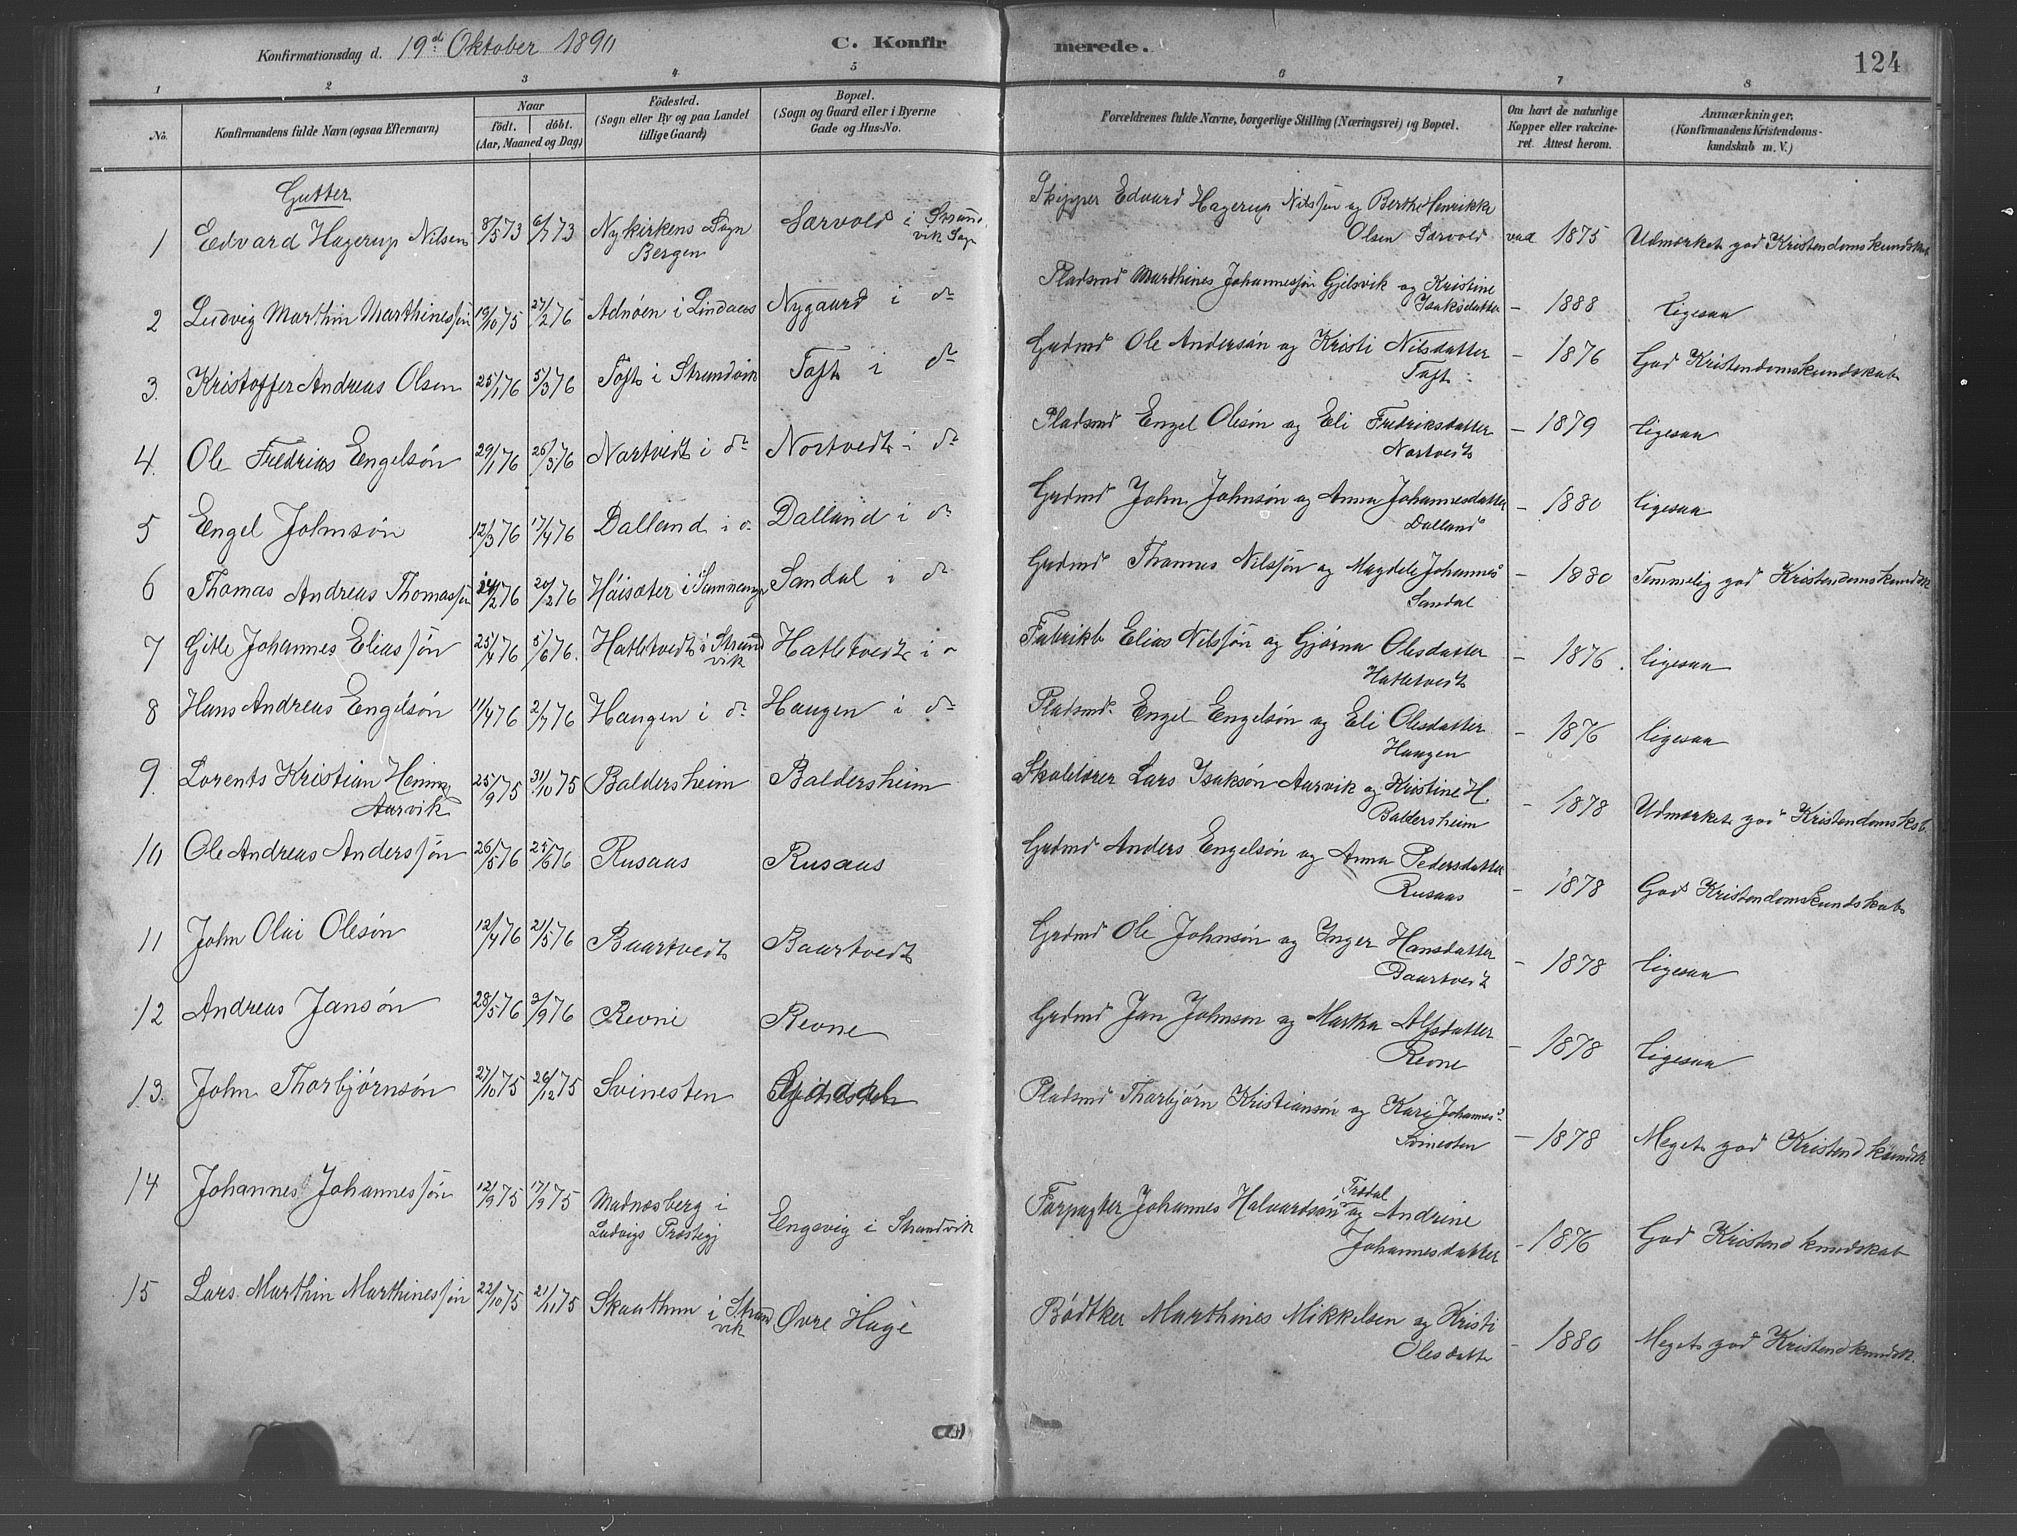 Konfirmationsdag d. 19d Oktober 1890 C. Konfirmerede. 124
1 2 3 4 5 6 7 8
No. Konfirmandens fulde Navn (ogsaa Efternavn) Naar født. døbt. (Aar, Maaned og Dag) Fødested. (Sogn eller By og paa Landet tillige Gaard) Bopæl. (Sogn og Gaard eller i Byerne Gade og Hus-No. Forældrenes fulde Navne, borgerlige Stilling (Næringsvei) og Bopæl. Om havt de naturlige Kopper eller vakcineret. Attest herom. Anmærkninger. (Konfirmandens Kristendomskundskab m. V.)
Gutter
1 Edvard Hagerup Nilsen 8/5 73 6/7 73 Nykirkens Sogn Bergen Særvold i Strandvik Sogn Skipper Edvard Hagerup Nilssen og Berthe Henrikke Olsen Særvold vac 1875 Udmærket god Kristendomskundskab
2 Ludvig Marthin Marthinessøn 19/10 75 27/2 76 Adnøen i Lindaas Nygaard i do Pladsmd Marthines Johannessøn Gjelsvik og Kristine Isaksdatter – 1888 ligesaa
3. Kristoffer Andreas Olsen 25/1 76 5/3 76 Toft i Strandvik Toft i do Grdmd Ole Andersøn og Kristi Nilsdatter Toft – 1876 God Kristendomskundskab
4. Ole Fredrias Engelsøn 29/1 76 26/3 76 Nortvedt i do Nortvedt i do Pladsmd Engel Olesøn og Eli Fredriksdatter Nortvedt – 1879 ligesaa
5 Engel Johnsøn 12/3 76 17/4 76 Dalland i do Dalland i do Grdmd John Johnsøn og Anna Johannesdatter Dalland – 1880 ligesaa
6 Thomas Andreas Thomassøn 14/2 76 20/2 76 Høisæter i Samnanger Sandal i do Grdmd Thomas Nilssøn og Magdele Johannes Sandal – 1880 Temmelig god Kristendomskundsk
7 Gitle Johannes Eliassøn 25/4 76 5/6 76. Hatletvedt i Strandvik Hatletvedt i do Fabrikb Elias Nilssøn og Gjørna Olsdatter Hatletvedt – 1876. ligesaa
8 Hans Andreas Engelsøn 11/4 76 2/7 76 Haugen i do Haugen i do Pladsmd. Engel Engelsøn og Eli Olsdatter Haugen – 1876 ligesaa
9. Lorents Kristian Hening Aarvik 25/9 75 31/10 75 Baldersheim Baldersheim Skolelærer Lars Isaksøn Aarvik og Kristine H. Baldersheim – 1878 Udmærket god Kristendomskab.
10 Ole Andreas Anderssøn 26/5 76 25/6 76 Rusaas Rusaas Grdmd Anders Engelsøn og Anna Pedersdatter Rusaas – 1878 God Kristendomskundskab
11 John Olai Olesøn 12/4 76 21/5 76 Baartvedt Baartvedt Grdmd Ole Johnsøn og Inger Hansdatter Baartvedt – 1878 ligesaa
12 Andreas Jansøn 28/5 76 3/9 76 Revne Revne Grdmd Jan Johnson og Martha Alfsdatter Revne – 1878 ligesaa
13. John Thorbjørnsøn 27/10 75 26/12 75 Svinesten Pladsmd Thorbjørn Kristiansøn og Kari Johannesd. Svinesten – 1878 Meget god Kristend kundsk
14 Johannes Johannessøn 12/9 75 17/9 75 Madnæsberg i Ludvigs Præstegj Engevig i Strandvik Forpagter Johannes Halvardsøn Trædal og Andrine Johannesdatter – 1876 God Kristend kundskab
15 Lars Marthin Marthinessøn 22/10 75 21/11 75 Skaathun i Strandvik Øvre Hage Bødtker Marthines Mikkelsen og Kristi Olesdatt – 1880 Meget god Kristendkundsk.